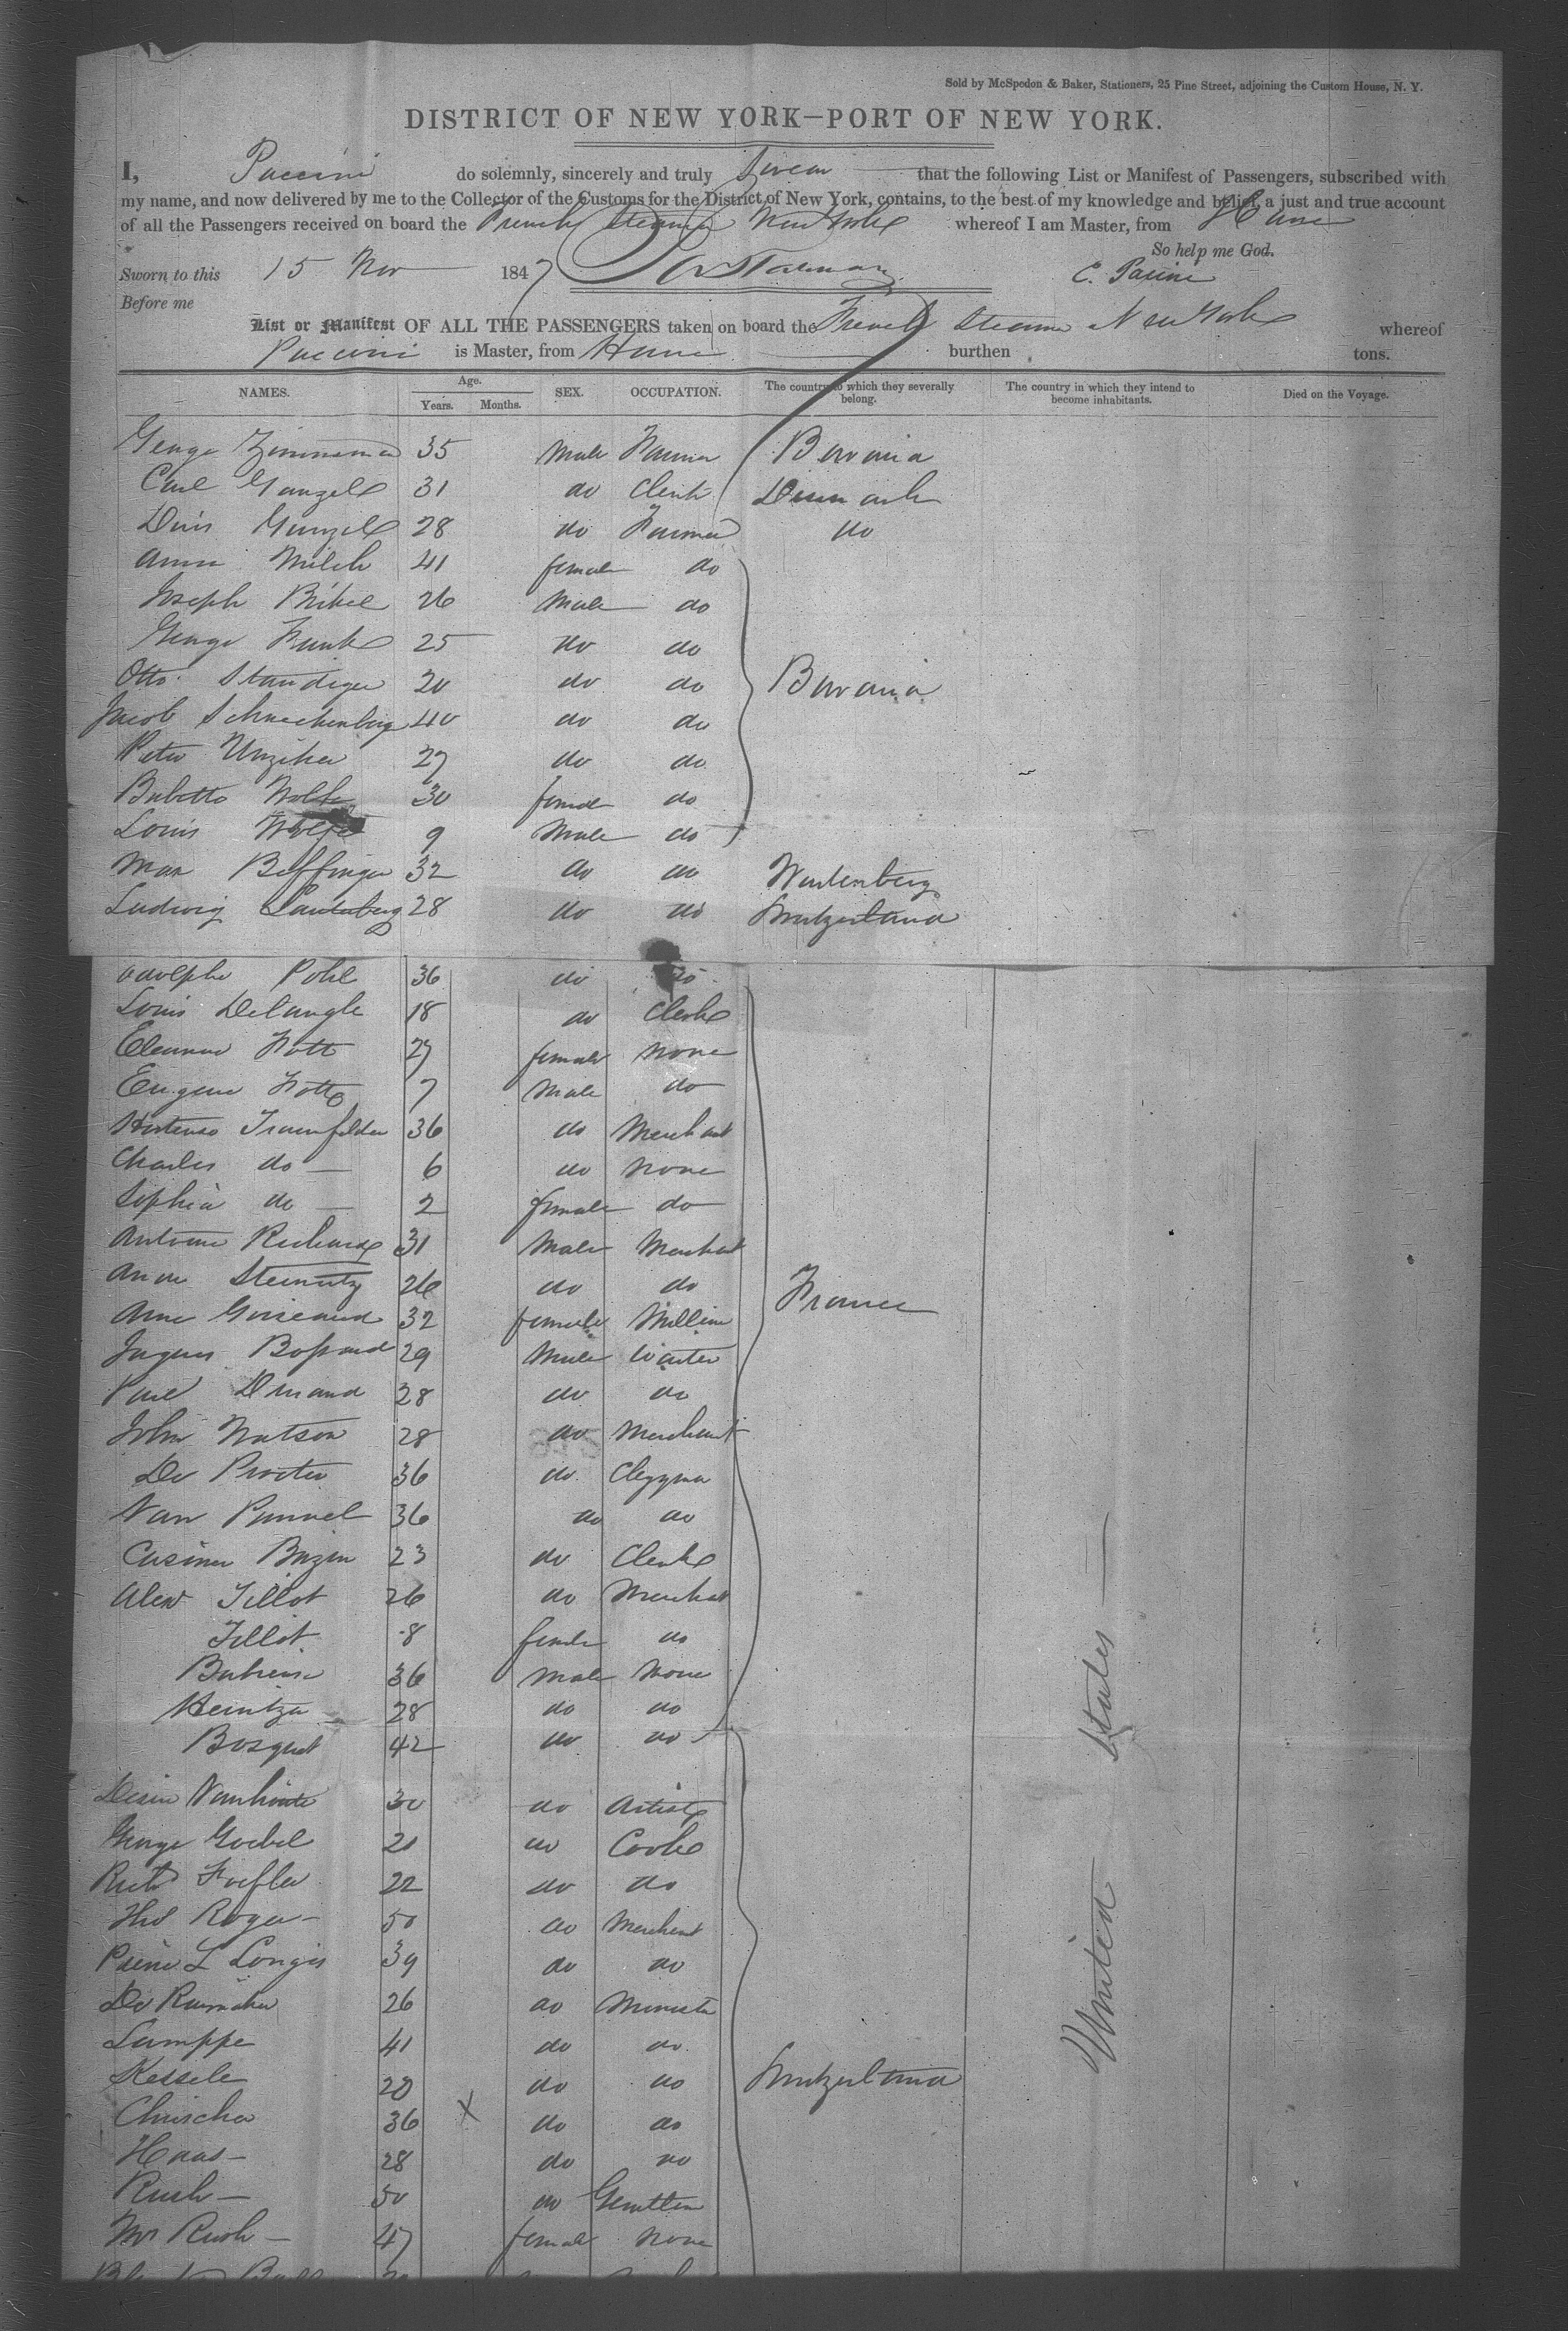 Sold by McSpedon & Baker, Stationers, 25 Pine Street, adjoining the Custom House, N. Y.
DISTRICT OF NEW YORK—PORT OF NEW YORK.
I, Paccini do solemnly, sincerely and truly Swear that the following List or Manifest of Passengers, subscribed with
my name, and now delivered by me to the Collector of the Customs for the District of New York, contains, to the best of my knowledge and belief, a just and true account
of all the Passengers received on board the French Steamer New York whereof I am Master, from Havre
So help me God.
Sworn to this 15 Nov 1847 C. Pacini
Before me
List or Manifest OF ALL THE PASSENGERS taken on board the French Steamer New York whereof
Paccini is Master, from Havre burthen tons.
NAMES. Age. Years. Months. SEX. OCCUPATION. The country to which they severally belong. The country in which they intend to become inhabitants. Died on the Voyage.
George Zimmerman 35 Male Farmer Bavaria
Carl Ganzel 31 do Clerk Denmark
Ganzel 28 do Farmer do
Anna Milch 41 female do
Joseph Bikel 26 Male do
George Frank 25 do do
Otto Standiger 20 do do Bavaria
Jacob Schneckenberger 40 do do
Peter Unziker 27 do do
Babette Wolfe 30 female do
Louis Wolfe 9 Male do
Max Belffinger 32 do do Wurtemberg
Ludwig Lauterberg 28 do do Switzerland
Adolphe Pohl 36 do do
Louis Delangle 18 do Clerk
Eleanor Fott 27 female None
Eugene Fott 7 Male do
Hortense Traumfelder 36 do Merchant
Charles do 6 do None
Sophia do 2 female do
Antoine Richard 31 Male Merchant
Steinitz 26 do do France
Anne 32 female Milliner
Jaques Bossard 29 Male Waiter
Paul Durand 28 do do
John Watson 28 do Merchant
De Procter 36 do Clergyman
Van Pannel 36 do do
Casimer Bazin 23 do Clerk
Alex Tillot 26 do Merchant
Tillot 8 female do
36 Male None
Heintza 28 do do
Bosquet 42 do do
Desire Vanhoute 30 do Artist
George Goebel 21 do Cook
Foefler 22 do do
Roger 50 do Merchant
L Longis 39 do do
De 26 do Minister
Lamppe 41 do do
Kessele 20 do do Switzerland
36 X do do
Haas 28 do do
Rush 50 do Gentleman
Mrs Rush 47 female None
United States